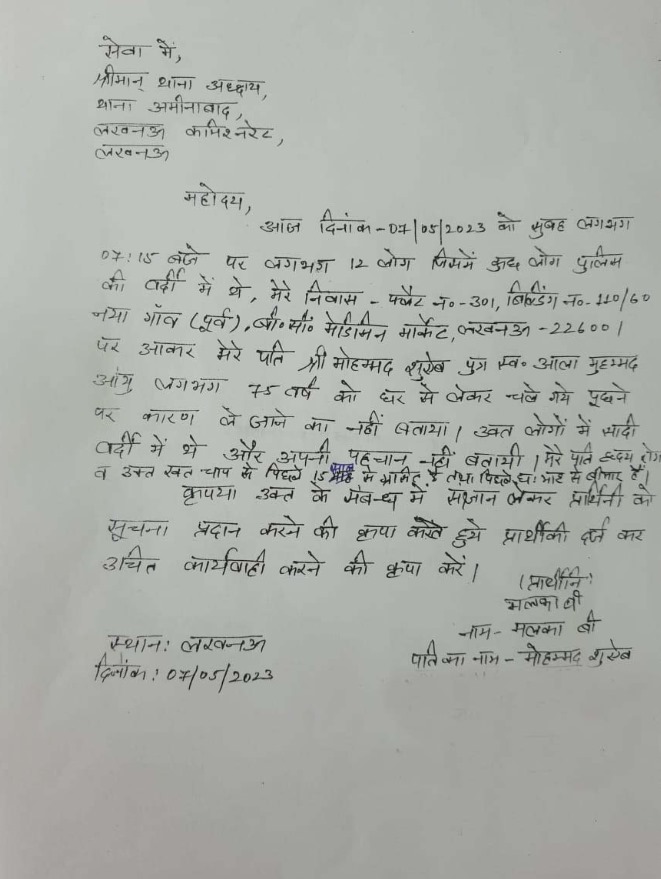 सेवा में,
श्रीमान् थाना अध्यक्ष,
थाना अमीनाबाद,
लखनऊ कमिश्नरेट,
लखनऊ
महोदय,
आज दिनांक-07/05/2023 को सुबह लगभग
07:15 बजे पर लगभग 12 लोग जिसमें कुछ लोग पुलिस
की वर्दी में थे, मेरे निवास - फ्लैट नं०-301, बिल्डिंग नं०-110/60
नया गाँव (पूर्व), बी०सी० मेडिसिन मार्केट, लखनऊ-226001
पर आकर मेरे पति श्री मोहम्मद शुऐब पुत्र स्व० आला मुहम्मद
आयु लगभग 75 वर्ष को घर से लेकर चले गये पूछने
पर कारण ले जाने का नहीं बताया। उक्त लोगों में सादी
वर्दी में थे और अपनी पहचान नहीं बतायी। मेरे पति हृदय रोग
व उक्त रक्त चाप से पिछले 15 से ग्रसित है तथा पिछले भर से बीमार हैं।
कृपया उक्त के संबन्ध में संज्ञान लेकर प्रार्थिनी को
सूचना प्रदान करने की कृपा करते हुये प्राथमिकी दर्ज कर
उचित कार्यवाही करने की कृपा करें।
(प्रार्थीनि)
मलका बी
नाम - मलका बी
पति का नाम - मोहम्मद शुऐब
स्थान: लखनऊ
दिनांक: 07/05/2023